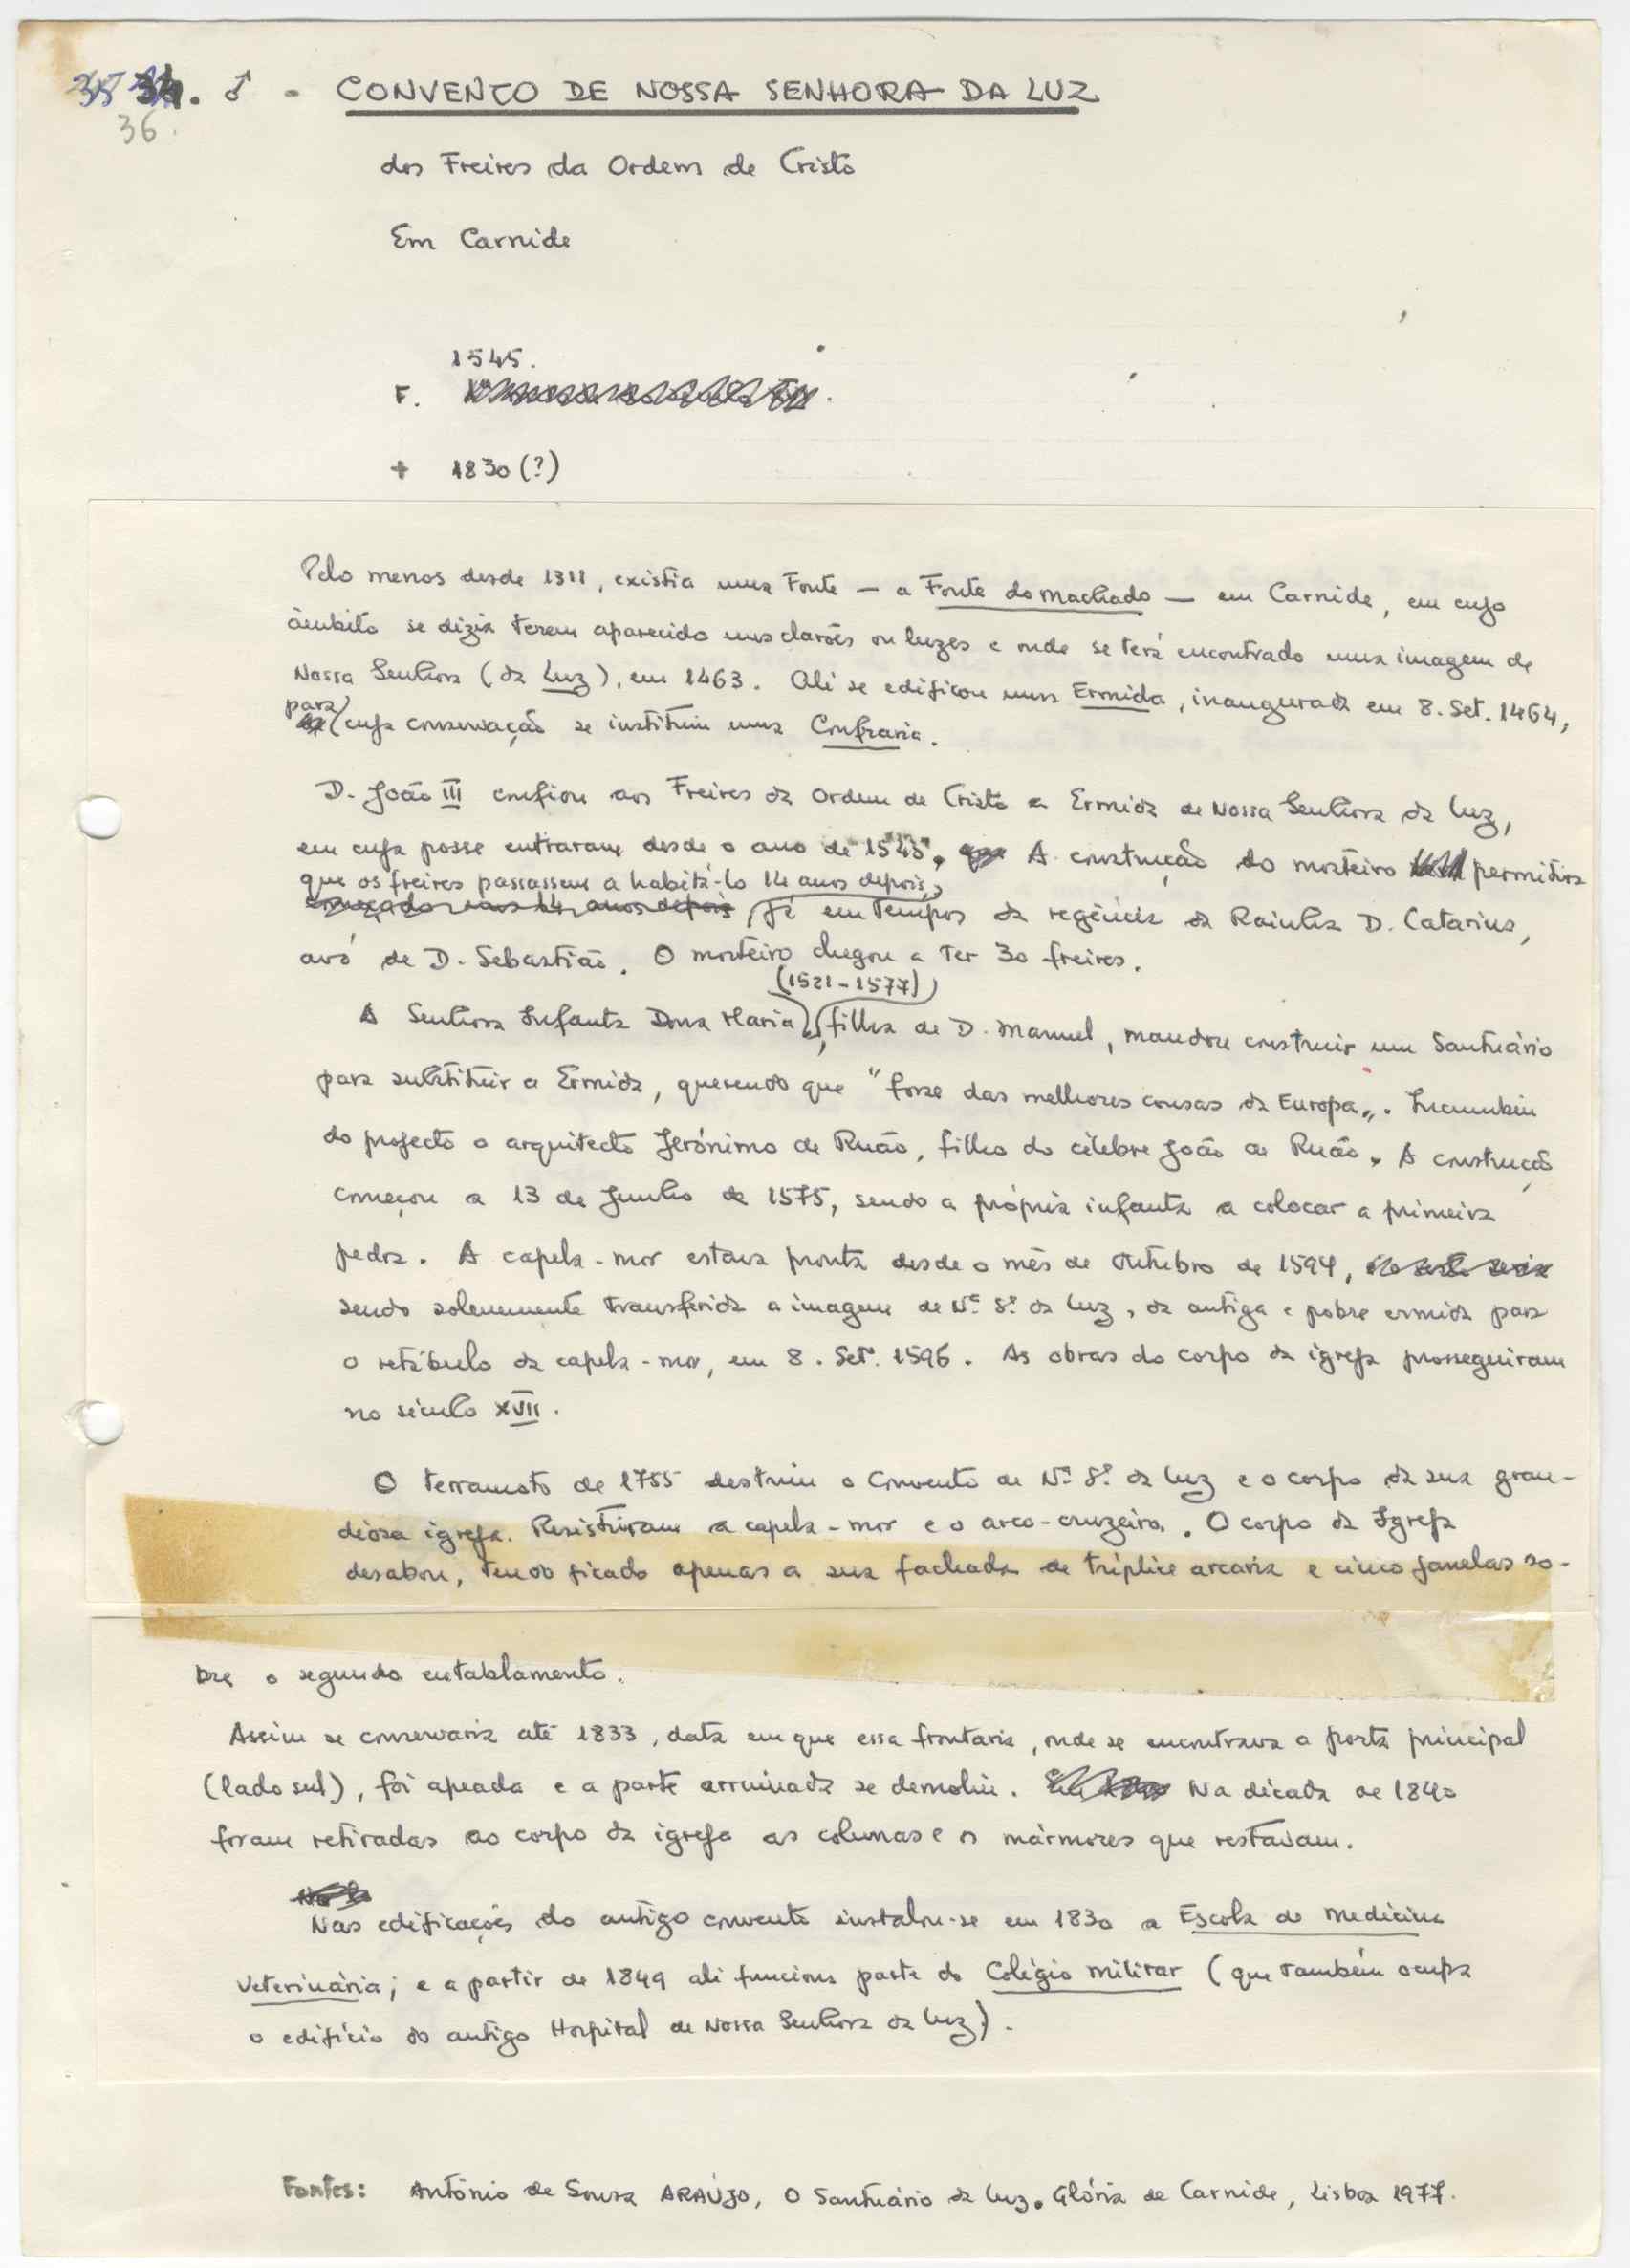 34. ♂ - CONVENTO DE NOSSA SENHORA DA LUZ
36.
dos Freires da Ordem de Cristo
Em Carnide
1545.
F.
+ 1830 (?)
Pelo menos desde 1311, existia uma Fonte — a Fonte do machado — em Carnide, em cujo
âmbito se dizia terem aparecido uns clarões ou luzes e onde se terá encontrado uma imagem de
Nossa Senhora (da Luz), em 1463. Ali se edificou uma Ermida, inaugurada em 8. Set. 1464,
para cuja conservação se instituiu uma Confraria.
D. João III confiou aos Freires da Ordem de Cristo a Ermida de Nossa Senhora da Luz,
em cuja posse entraram desde o ano de 1545. A construção do mosteiro permitira
que os freires passassem a habitá-lo 14 anos depois,
já em tempos da regência da Rainha D. Catarina,
avó de D. Sebastião. O mosteiro chegou a ter 30 freires.
(1521-1577)
A Senhora Infanta Dona Maria, filha de D. Manuel, mandou construir um Santuário
para substituir a Ermida, querendo que "fosse das melhores cousas da Europa". Incumbiu
do projecto o arquitecto Jerónimo de Ruão, filho do célebre João de Ruão. A construção
começou a 13 de Junho de 1575, sendo a própria infanta a colocar a primeira
pedra. A capela-mor estava pronta desde o mês de Outubro de 1594,
sendo solenemente transferida a imagem de Nª Sª da Luz, da antiga e pobre ermida para
o retábulo da capela-mor, em 8. Setº. 1596. As obras do corpo da igreja prosseguiram
no século XVII.
O terramoto de 1755 destruiu o Convento de Nª Sª da Luz e o corpo da sua gran-
diosa igreja. Resistiram a capela-mor e o arco-cruzeiro. O corpo da Igreja
desabou, tendo ficado apenas a sua fachada de tríplice arcaria e cinco janelas so-
bre o segundo entablamento.
Assim se conservaria até 1833, data em que essa frontaria, onde se encontrava a porta principal
(lado sul), foi apeada e a parte arruinada se demoliu. Na década de 1840
foram retiradas ao corpo da igreja as colunas e os mármores que restavam.
Nas edificações do antigo convento instalou-se em 1830 a Escola de Medicina
Veterinária; e a partir de 1849 ali funciona parte do Colégio Militar (que também ocupa
o edifício do antigo Hospital de Nossa Senhora da Luz).
Fontes: António de Sousa ARAÚJO, O Santuário da Luz. Glória de Carnide, Lisboa 1977.